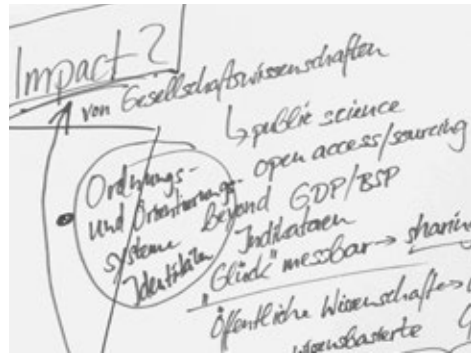 Impact?
von Gesellschaftswissenschaften
↳ public science
open access/sourcing
Ordnungs-
und Orientierungs-
systeme
Identitäten
Beyond GDP/BSP
Indikatoren
"Glück" messbar → sharing
öffentliche Wissenschaft →
wissensbasierte